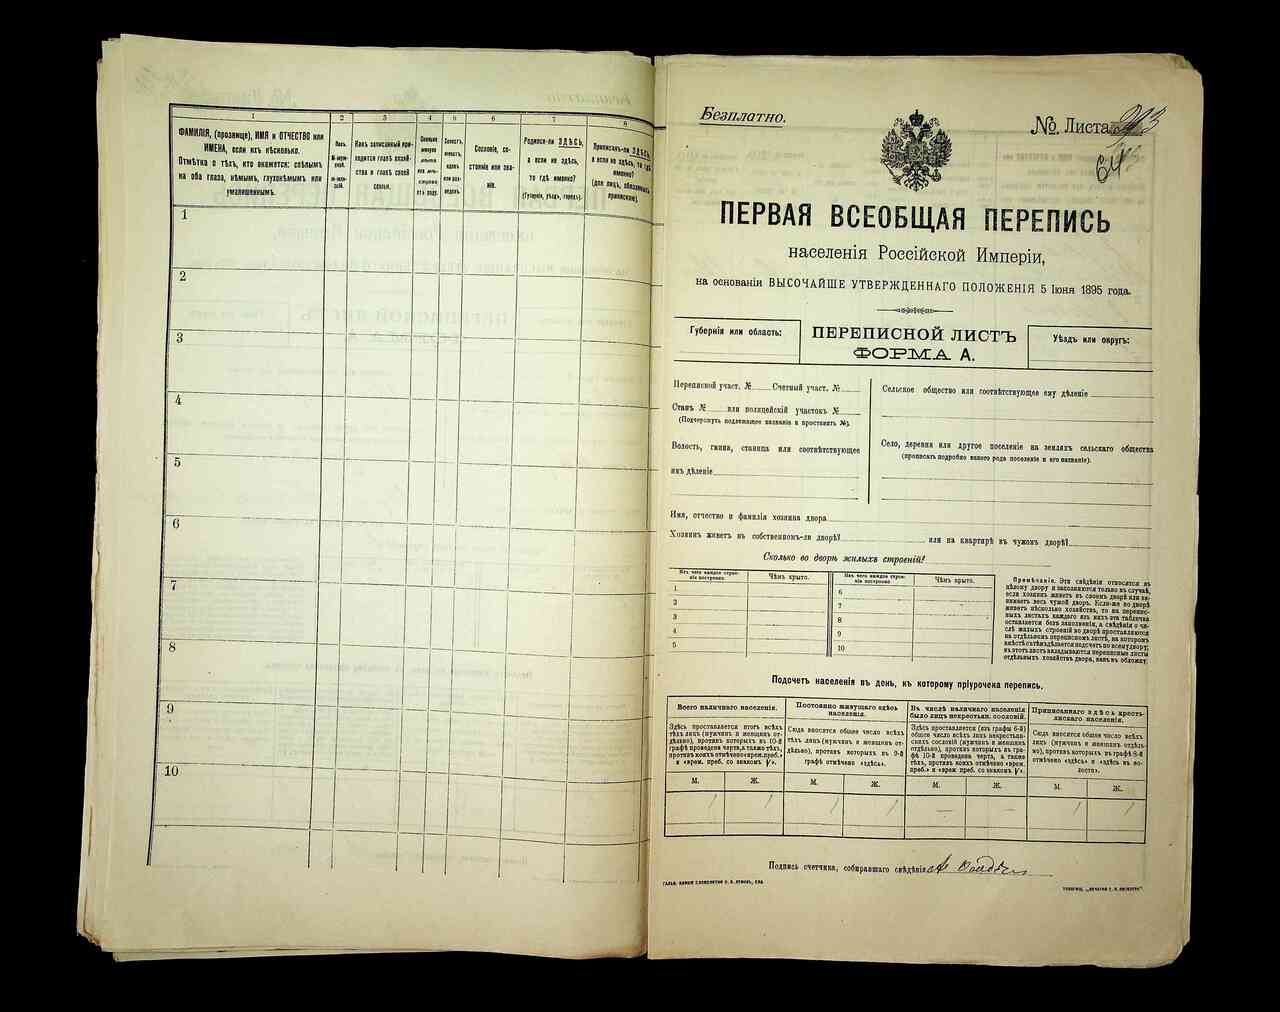 1
2
3
4
5
6
7
8
ФАМИЛІЯ, (прозвище), ИМЯ и ОТЧЕСТВО или
ИМЕНА, если ихъ нѣсколько.
Отмѣтка о тѣхъ, кто окажется: слѣпымъ
на оба глаза, нѣмымъ, глухонѣмымъ или
умалишеннымъ.
Полъ.
Какъ записанный при-
ходится главѣ хозяй-
ства и главѣ своей
семьи.
Сословіе, со-
стояніе или зва-
ніе.
Родился-ли ЗДѢСЬ,
а если не здѣсь,
то гдѣ именно?
(Губернія, уѣздъ, городъ).
Приписанъ-ли ЗДѢСЬ,
а если не здѣсь, то гдѣ
именно?
(для лицъ, обязанныхъ
припискою).
1
2
3
4
5
6
7
8
9
10
Безплатно.
№. Листа
64
ПЕРВАЯ ВСЕОБЩАЯ ПЕРЕПИСЬ
населенія Россійской Имперіи,
на основаніи ВЫСОЧАЙШЕ УТВЕРЖДЕННАГО ПОЛОЖЕНІЯ 5 Іюня 1895 года.
Губернія или область:
ПЕРЕПИСНОЙ ЛИСТЪ
ФОРМА А.
Уѣздъ или округъ:
Переписной участ. № Счетный участ. №
Станъ № или полицейскій участокъ №
(Подчеркнуть подлежащее названіе и проставить №).
Волость, гмина, станица или соотвѣтствующее
имъ дѣленіе
Сельское общество или соотвѣтствующее ему дѣленіе
Село, деревня или другое поселеніе на земляхъ сельскаго общества
(прописать подробно какого рода поселеніе и его названіе).
Имя, отчество и фамилія хозяина двора
Хозяинъ живетъ въ собственномъ-ли дворѣ? или на квартирѣ въ чужомъ дворѣ?
Сколько во дворѣ жилыхъ строеній?
Изъ чего каждое строе-
ніе построено.
Чѣмъ крыто.
Изъ чего каждое строе-
ніе построено.
Чѣмъ крыто.
1
2
3
4
5
6
7
8
9
10
Примѣчаніе. Эти свѣдѣнія относятся къ
цѣлому двору и заполняются только въ случаѣ,
если хозяинъ живетъ въ своемъ дворѣ или за-
нимаетъ весь чужой дворъ. Если-же во дворѣ
живетъ нѣсколько хозяйствъ, то на перепис-
ныхъ листахъ каждаго изъ нихъ эта табличка
оставляется безъ заполненія, а свѣдѣнія о чи-
слѣ жилыхъ строеній во дворѣ проставляются
на отдѣльномъ переписномъ листѣ, на которомъ
вмѣстѣ съ тѣмъ дѣлается подсчетъ по всему двору;
въ этотъ листъ вкладываются переписные листы
отдѣльныхъ хозяйствъ двора, какъ въ обложку.
Подсчетъ населенія въ день, къ которому пріурочена перепись.
Всего наличнаго населенія.
Здѣсь проставляется итогъ всѣхъ
тѣхъ лицъ (мужчинъ и женщинъ от-
дѣльно), противъ которыхъ въ 10-й
графѣ проведена черта, а также тѣхъ,
противъ коихъ отмѣчено «врем. преб.»
и «врем. преб. со знакомъ V».
Постоянно живущаго здѣсь
населенія.
Сюда вносится общее число всѣхъ
тѣхъ лицъ (мужчинъ и женщинъ от-
дѣльно), противъ которыхъ въ 9-й
графѣ отмѣчено «здѣсь».
Въ числѣ наличнаго населенія
было лицъ некрестьян. сословій.
Здѣсь проставляется (изъ графы 6-й)
общее число всѣхъ лицъ некрестьян-
скихъ сословій (мужчинъ и женщинъ
отдѣльно), противъ которыхъ въ гра-
фѣ 10-й проведена черта, а также
тѣхъ, противъ коихъ отмѣчено «врем.
преб.» и «врем. преб. со знакомъ V».
Приписаннаго здѣсь кресть-
янскаго населенія.
Сюда вносится общее число всѣхъ
лицъ (мужчинъ и женщинъ отдѣль-
но), противъ которыхъ въ графѣ 8-й
отмѣчено «здѣсь» и «здѣсь въ во-
лости».
М. Ж. М. Ж. М. Ж. М. Ж.
1 1 1 1 — — 1 1
Подпись счетчика, собиравшаго свѣдѣнія